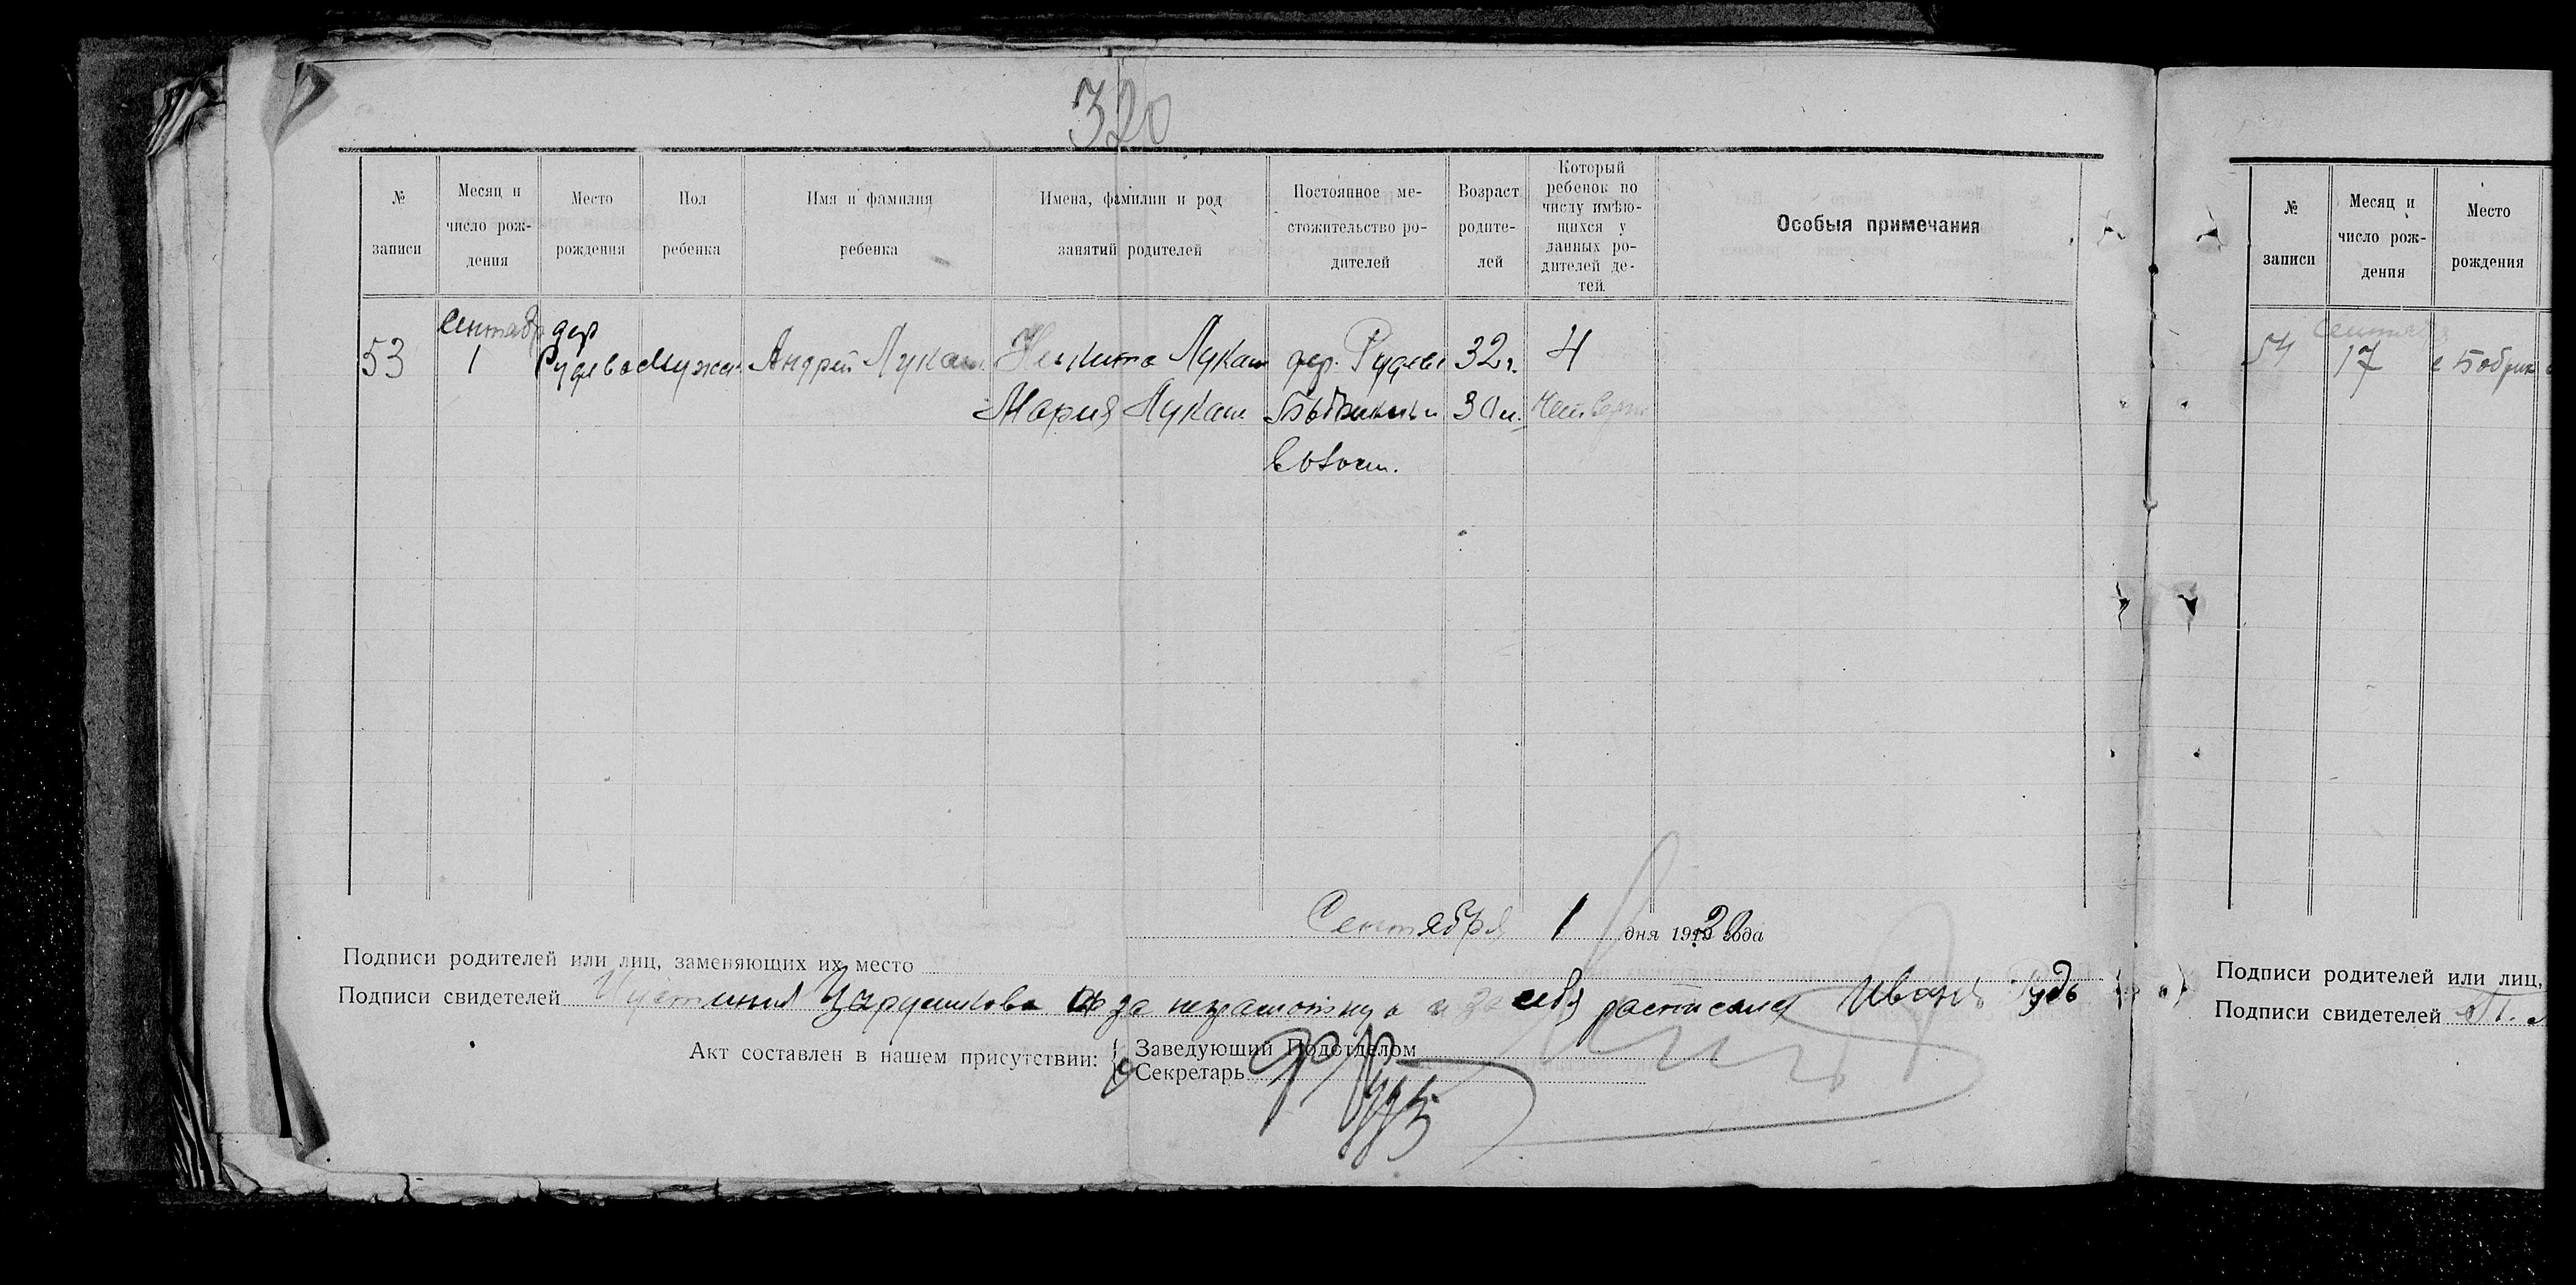 320
№ записи
Месяц и число рож-дения
Место рождения
Пол ребенка
Имя и фамилия ребенка
Имена, фамилии и род занятий родителей
Постоянное ме-стожительство ро-дителей
Возраст родите-лей
Который ребенок по числу имѣю-щихся у данных ро-дителей де-тей.
Особыя примечания
53
Сентябр 1
дер
Мужск.
Андрей Лукаш
Никита Лукаш
дер.
32 г.
4
Мария Лукаш
30 л.
Четверт
волост.
Сентября 1 дня 1920 года
Подписи родителей или лиц, заменяющих их место
Подписи свидетелей Иустиния за неграмотную и за себя расписался Иванъ Рудь
Акт составлен в нашем присутствии:
Заведующий Подотделом
Секретарь
№ записи
Месяц и число рож-дения
Место рождения
54
Сентября 17
с Бобрик
Подписи родителей или лиц,
Подписи свидетелей